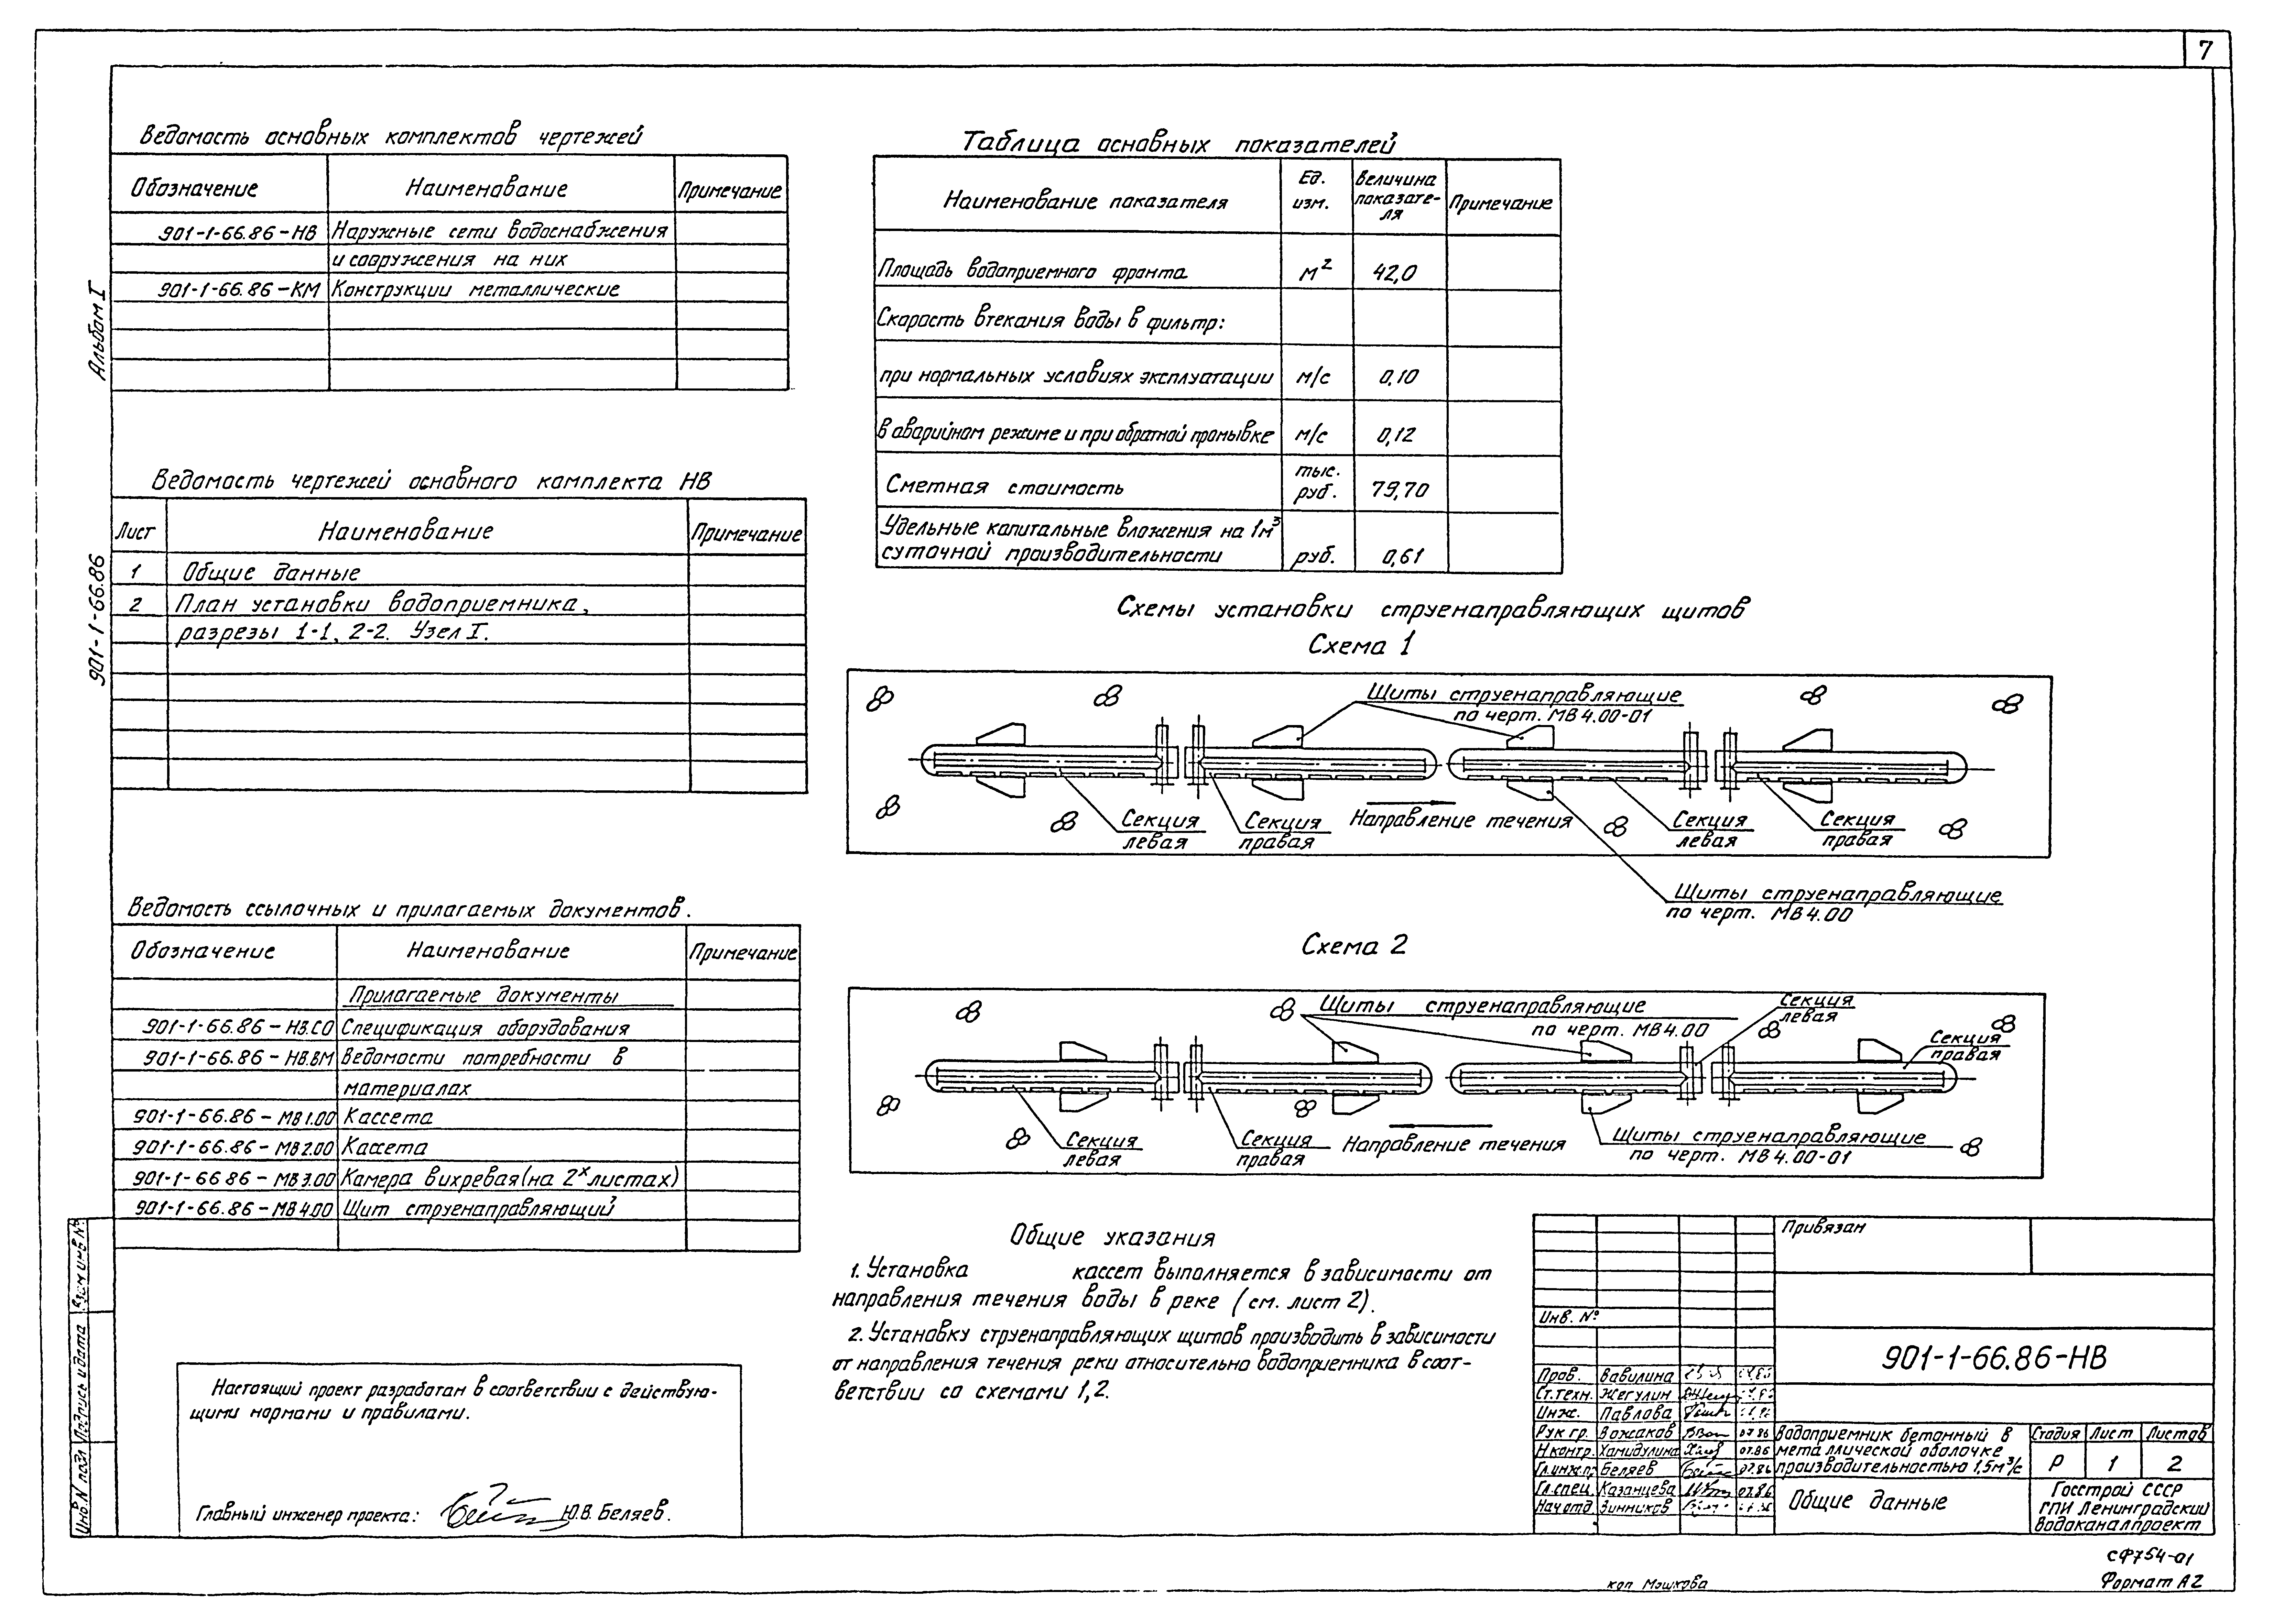 7
Альбом I
901-1-66.86
Ведомость основных комплектов чертежей
Обозначение Наименование Примечание
901-1-66.86-НВ Наружные сети водоснабжения
и сооружения на них
901-1-66.86-КМ Конструкции металлические
Ведомость чертежей основного комплекта НВ
Лист Наименование Примечание
1 Общие данные
2 План установки водоприемника,
разрезы 1-1, 2-2. Узел I.
Ведомость ссылочных и прилагаемых документов.
Обозначение Наименование Примечание
Прилагаемые документы
901-1-66.86-НВ.СО Спецификация оборудования
901-1-66.86-НВ.ВМ Ведомости потребности в
материалах
901-1-66.86-МВ1.00 Кассета
901-1-66.86-МВ2.00 Кассета
901-1-66 86-МВ3.00 Камера вихревая(на 2х листах)
901-1-66.86-МВ4.00 Щит струенаправляющий
Настоящий проект разработан в соответствии с действую-
щими нормами и правилами.
Главный инженер проекта: Ю.В. Беляев.
Таблица основных показателей
Наименование показателя Ед. изм. Величина показате-ля Примечание
Площадь водоприемного фронта м² 42,0
Скорость втекания воды в фильтр:
при нормальных условиях эксплуатации м/с 0,10
в аварийном режиме и при обратной промывке м/с 0,12
Сметная стоимость тыс. руб. 79,70
Удельные капитальные вложения на 1м³
суточной производительности руб. 0,61
Схемы установки струенаправляющих щитов
Схема 1
Щиты струенаправляющие
по черт. МВ4.00-01
Секция
левая
Секция
правая
Направление течения
Секция
левая
Секция
правая
Щиты струенаправляющие
по черт. МВ4.00
Схема 2
Щиты струенаправляющие
по черт. МВ4.00
Секция
левая
Секция
правая
Секция
левая
Секция
правая
Направление течения
Щиты струенаправляющие
по черт. МВ4.00-01
Общие указания
1. Установка кассет выполняется в зависимости от
направления течения воды в реке (см. лист 2).
2. Установку струенаправляющих щитов производить в зависимости
от направления течения реки относительно водоприемника в соот-
ветствии со схемами 1,2.
Привязан
Инв. №
901-1-66.86-НВ
Пров. Вавилина
Ст.техн. Жегулин
Инж. Павлова
Рук гр. Вожаков 07.86
Н контр. Хамидулина 07.86
Гл.инж.пр Беляев 07.86
Гл.спец. Казанцева 07.86
Нач отд. Зинников
Водоприемник бетонный в
металлической оболочке
производительностью 1,5м³/с
Стадия Лист Листов
Р 1 2
Общие данные
Госстрой СССР
ГПИ Ленинградский
Водоканалпроект
Инв.N подл Подпись и дата Взам инв №
СФ754-01
коп Мошкова
Формат А2